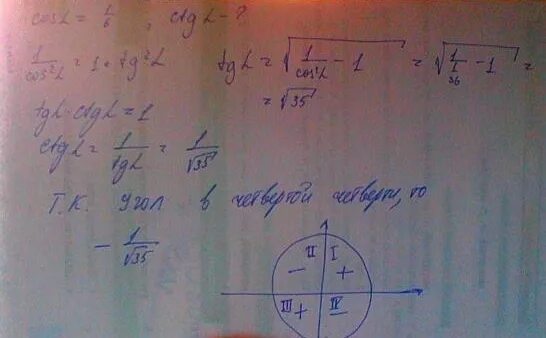 cosL = 1/6, ctgL - ?
1/cos²L = 1 + tg²L
tgL = √(1/cos²L - 1) = √(1/(1/36) - 1) =
= √35
tgL · ctgL = 1
ctgL = 1/tgL = 1/√35
Т.К. Угол в четвертой четверти, то
- 1/√35
II I
- +
III IV
+ -